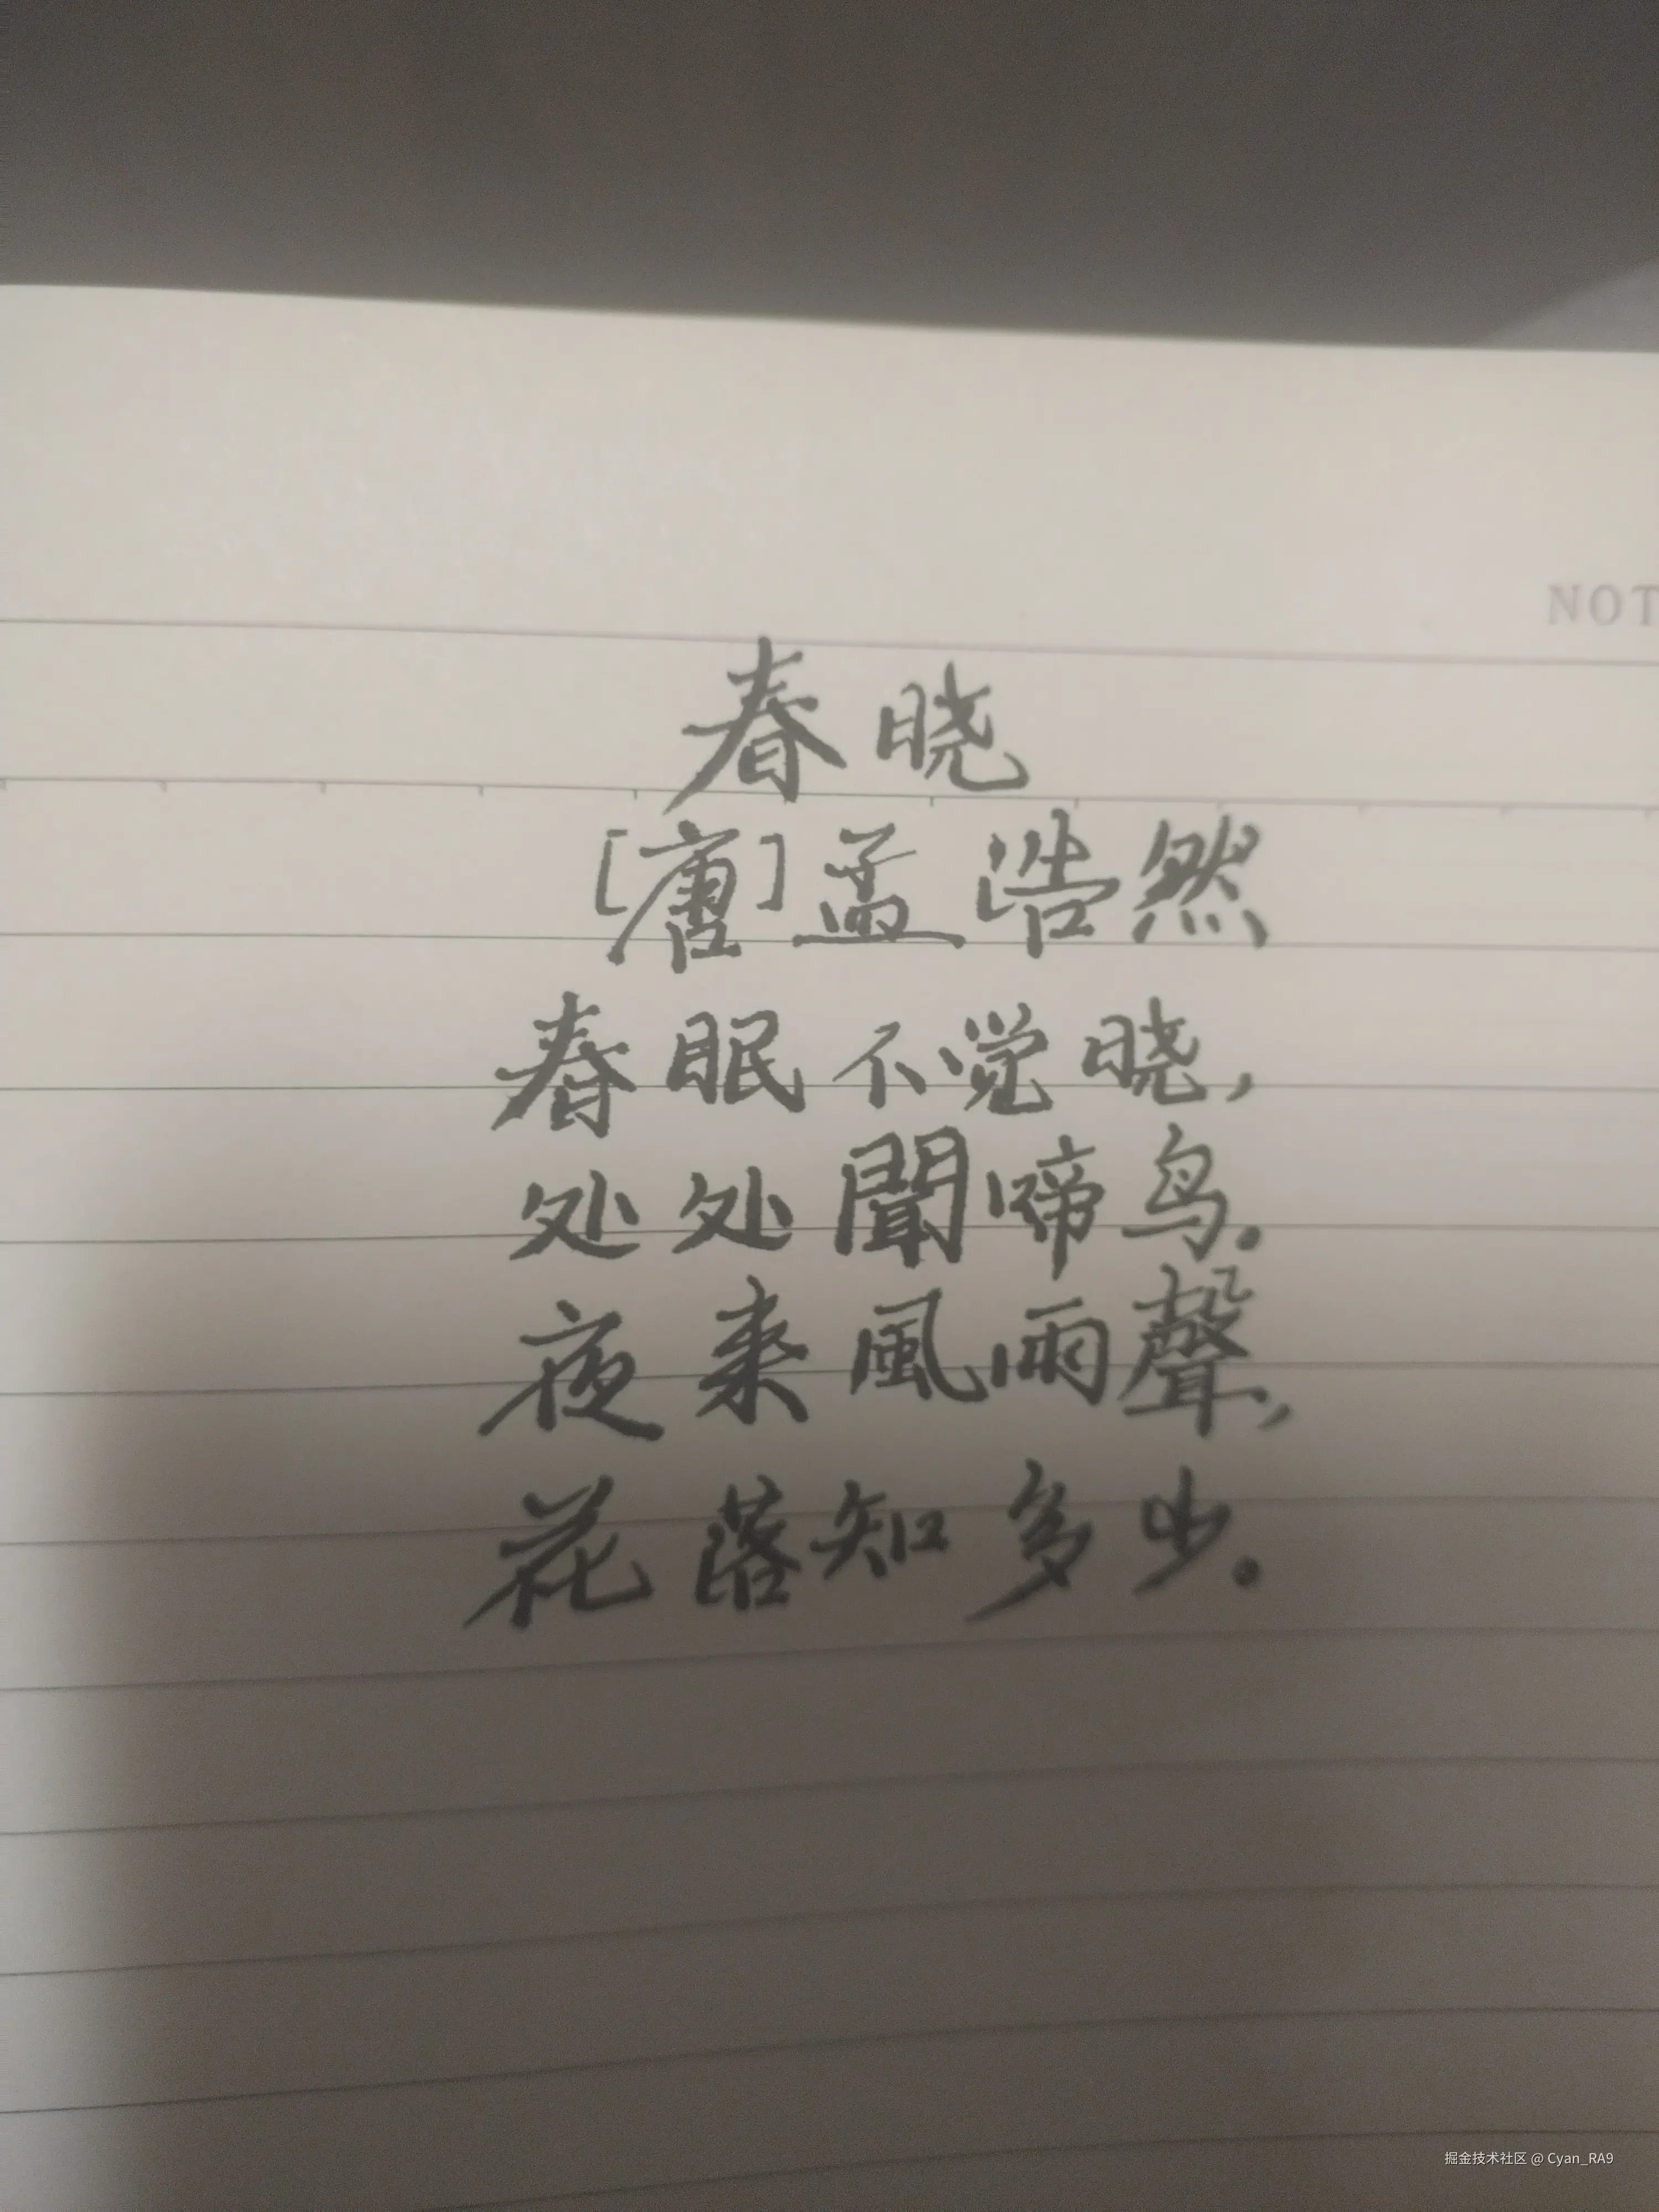 NOT
春晓
[唐]孟浩然
春眠不觉晓,
处处聞啼鸟.
夜来風雨聲,
花落知多少.
掘金技术社区 @ Cyan_RA9